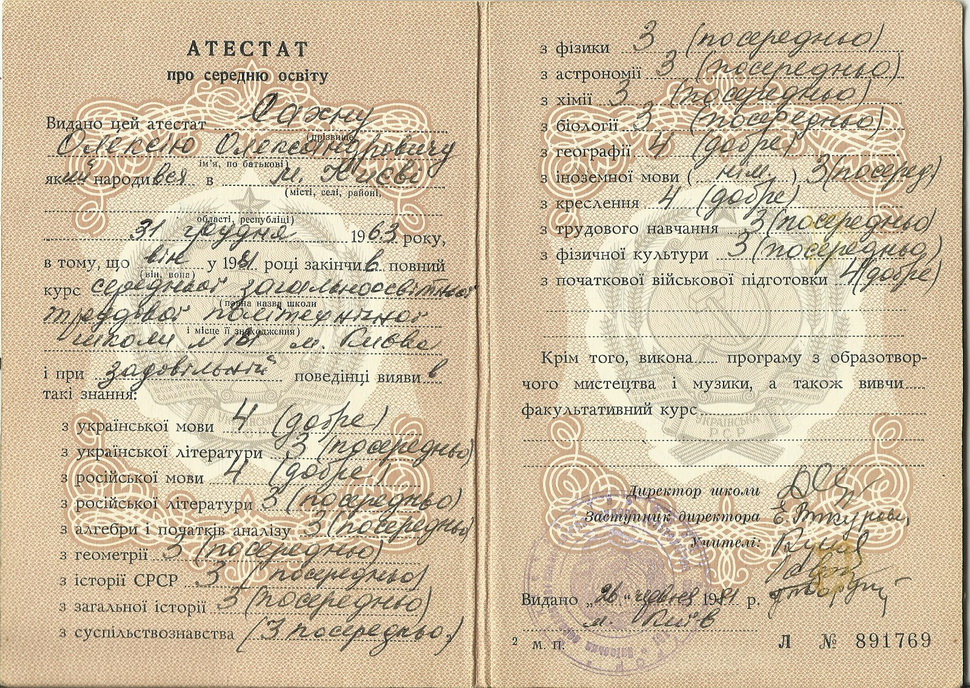 АТЕСТАТ
про середню освіту
Видано цей атестат Сахну
(прізвище,
Олексію Олександровичу
ім'я, по батькові)
який народився в м. Києві
(місті, селі, районі,
області, республіці)
31 грудня 1963 року,
в тому, що він у 1981 році закінчив повний
(він, вона)
курс середньої загальноосвітньої
(повна назва школи
трудової політехнічної
і місце її знаходження)
школи № 181 м. Києва
і при задовільній поведінці виявив
такі знання:
з української мови 4 (добре)
з української літератури 3 (посередньо)
з російської мови 4 (добре)
з російської літератури 3 (посередньо)
з алгебри і початків аналізу 3 (посередньо)
з геометрії 3 (посередньо)
з історії СРСР 3 (посередньо)
з загальної історії 3 (посередньо)
з суспільствознавства (3 посередньо.)
з фізики 3 (посередньо)
з астрономії 3 (посередньо)
з хімії 3 (посередньо)
з біології 3 (посередньо)
з географії 4 (добре)
з іноземної мови (нім.) 3 (посеред)
з креслення 4 (добре)
з трудового навчання 3 (посередньо)
з фізичної культури 3 (посередньо)
з початкової військової підготовки 4 (добре)
Крім того, викона программу з образотвор-
чого мистецтва і музики, а також вивчи
факультативний курс
УКРАЇНСЬКА
РСР
Директор школи
Заступник директора
Учителі:
Видано „26" червня 1981 р.
м. Київ
2 М. П.
Л № 891769